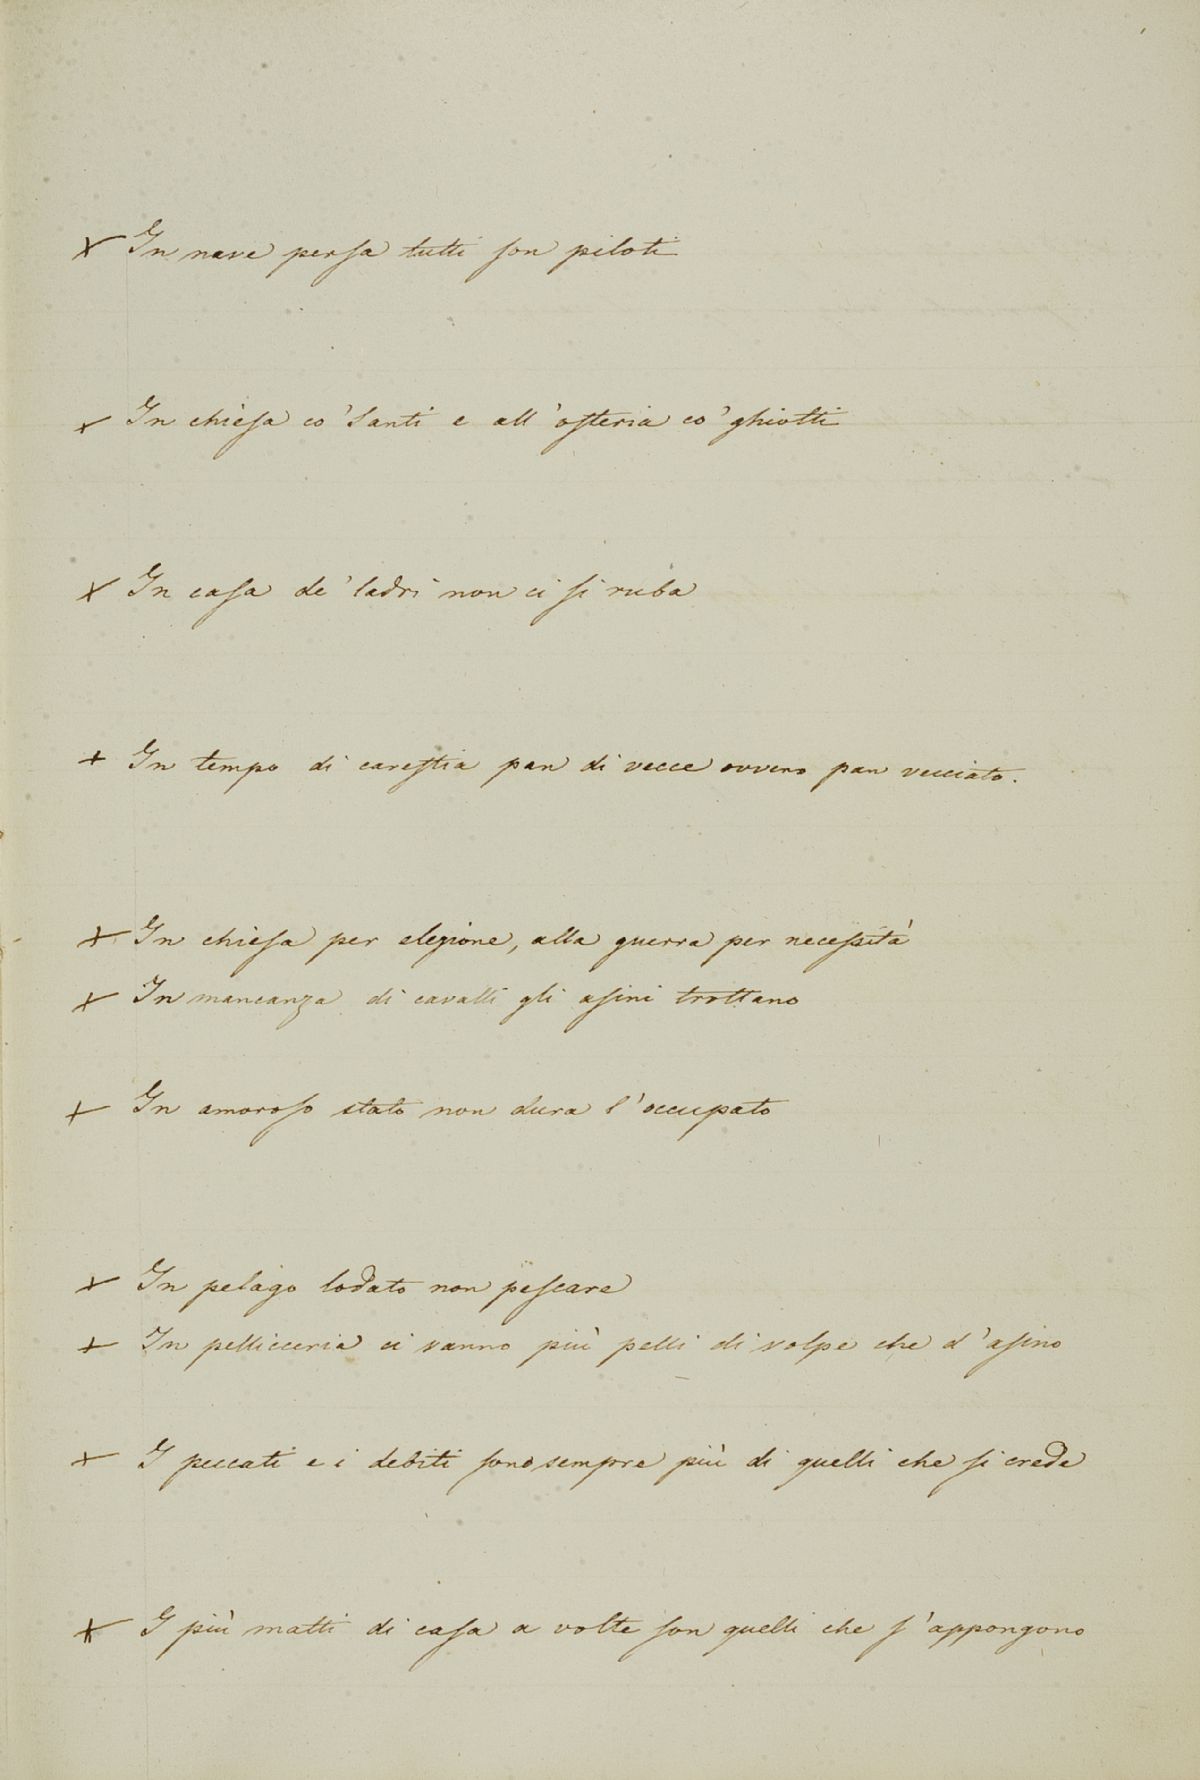 × In nave persa tutti son piloti
× In chiesa co' Santi e all'osteria co' ghiotti
× In casa de' ladri non ci si ruba
+ In tempo di carestia pan di vecce ovvero pan vecciato.
+ In chiesa per elezione, alla guerra per necessità
+ In mancanza di cavalli gli asini trottano
+ In amoroso stato non dura l'occupato
+ In pelago lodato non pescare
+ In pellicceria ci vanno più pelli di volpe che d'asino
+ I peccati e i debiti sono sempre più di quelli che si crede
+ I più matti di casa a volte son quelli che s'appongono